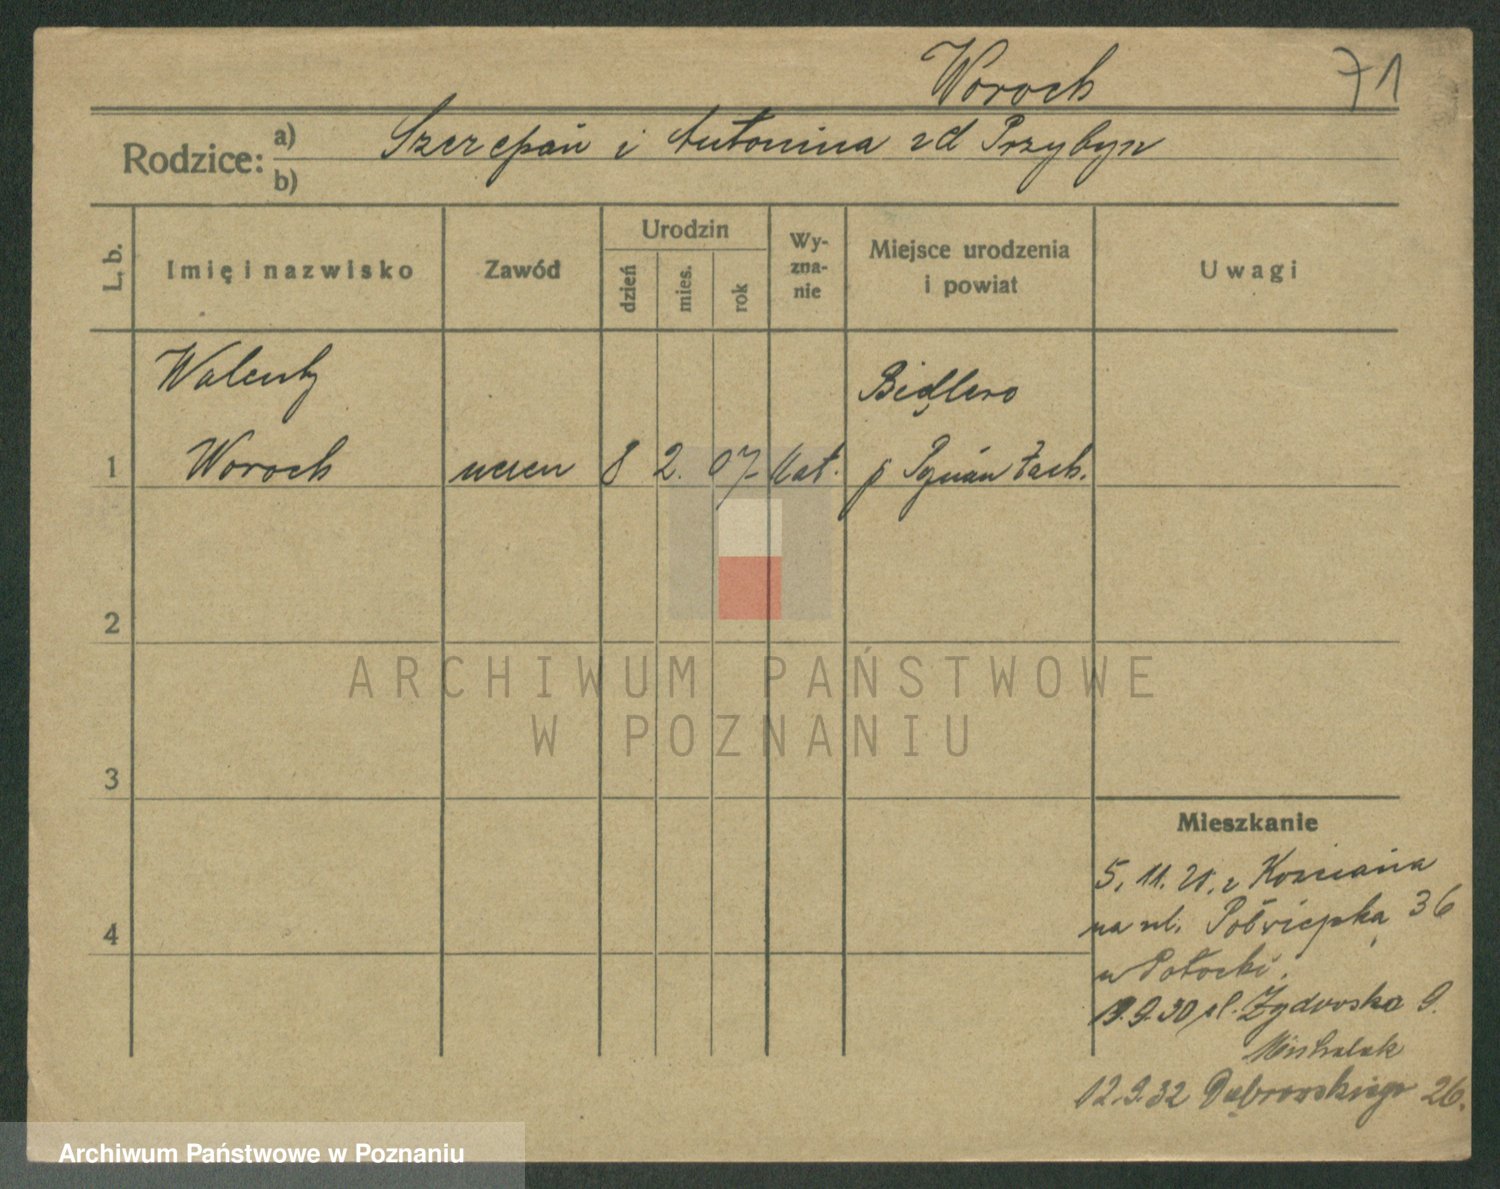 Woroch
71
Rodzice: a) Szczepan i Antonina zd Przybył
b)
L. b.
Imię i nazwisko
Zawód
Urodzin
dzień
mies.
rok
Wy-
zna-
nie
Miejsce urodzenia
i powiat
Uwagi
Walenty
Woroch
1
uczeń
8
2.
07
kat.
p Poznań Zach.
2
3
4
ARCHIWUM PAŃSTWOWE
W POZNANIU
Mieszkanie
5. 11. 21. z Kościana
na ul. Półwiejska 36
u Potocki.
9.30 Żydowska 9.
Michalak
12.9.32 Dąbrowskiego 26.
Archiwum Państwowe w Poznaniu